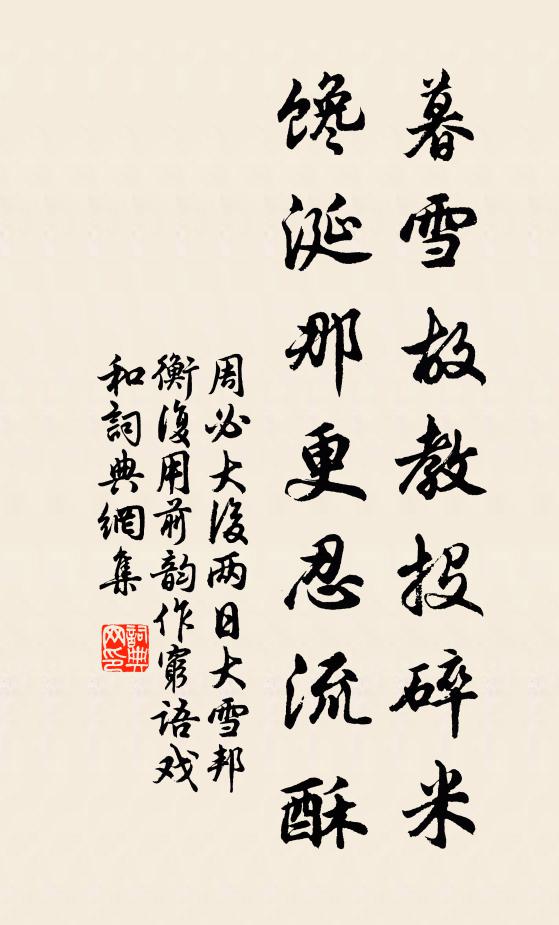 暮雪故教投碎米
馋涎那更忍流酥
周必大後两日大雪邦
衡復用前韵作窮语戏
和詞典網集
詞典
网印